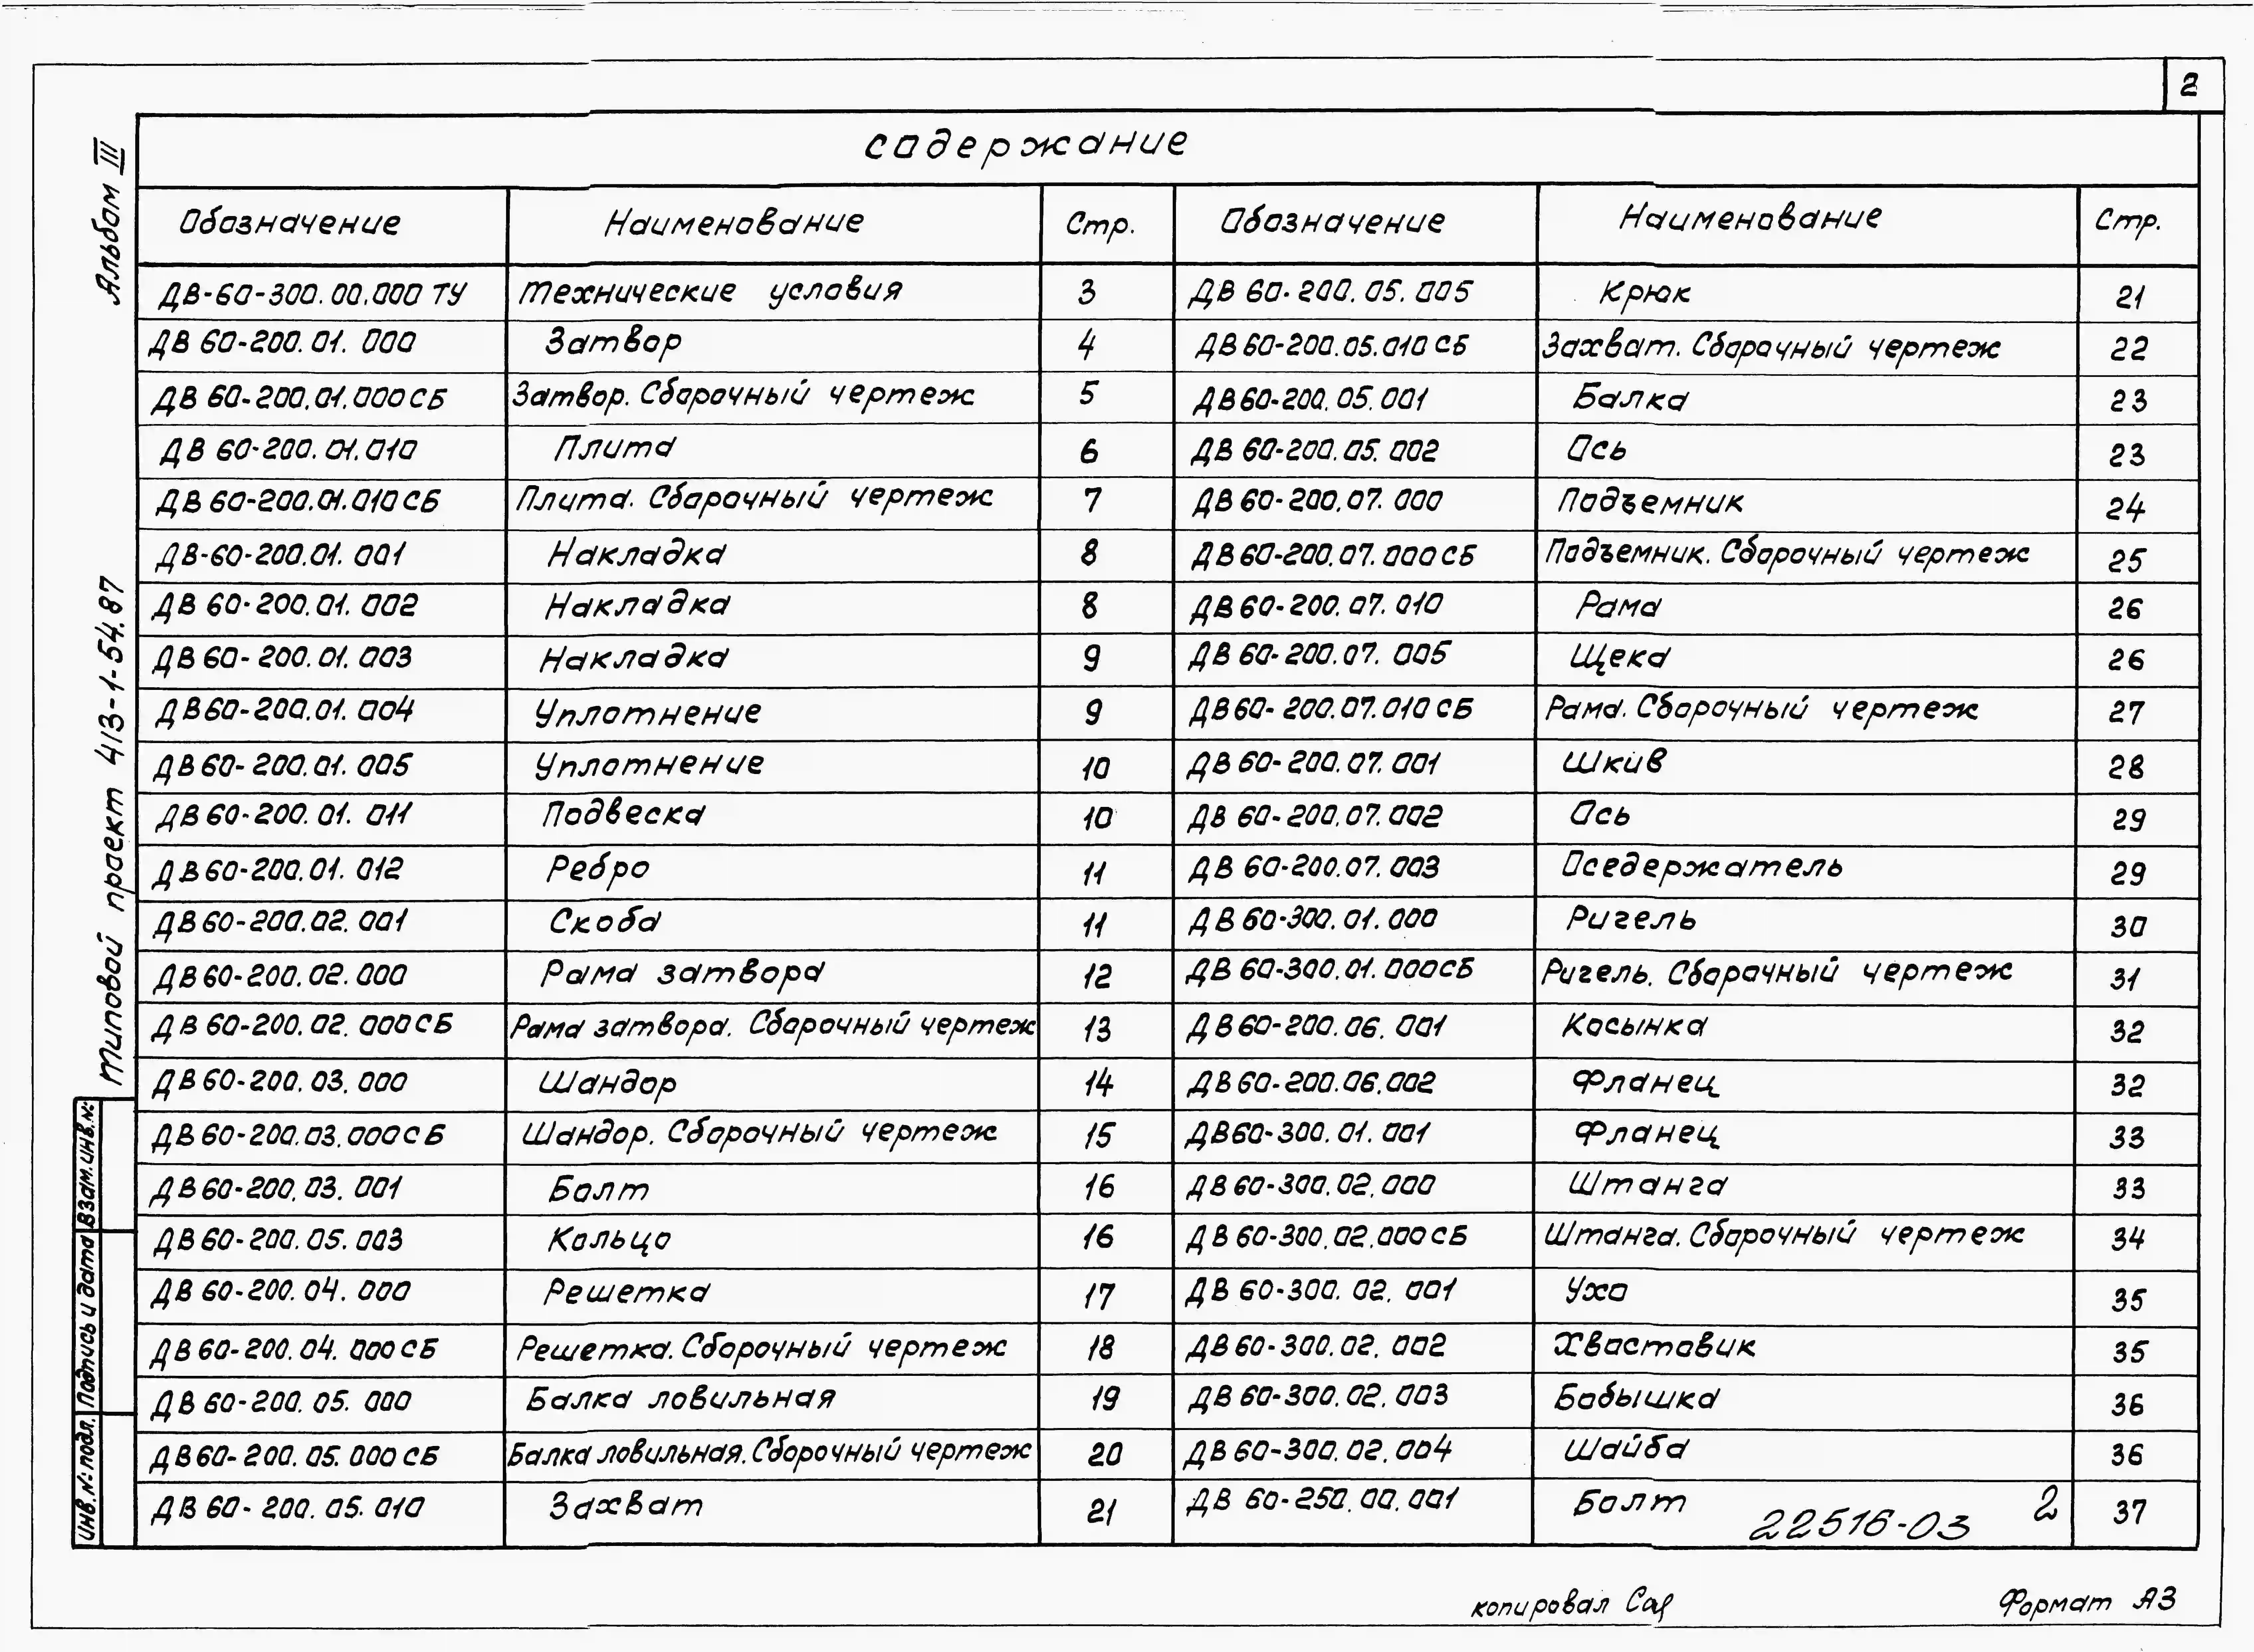 2
Содержание
Обозначение Наименование Стр. Обозначение Наименование Стр.
ДВ-60-300.00.000 ТУ Технические условия 3 ДВ 60-200.05.005 Крюк 21
ДВ 60-200.01.000 Затвор 4 ДВ 60-200.05.010 СБ Захват. Сборочный чертеж 22
ДВ 60-200.01.000 СБ Затвор. Сборочный чертеж 5 ДВ 60-200.05.001 Балка 23
ДВ 60-200.01.010 Плита 6 ДВ 60-200.05.002 Ось 23
ДВ 60-200.01.010 СБ Плита. Сборочный чертеж 7 ДВ 60-200.07.000 Подъемник 24
ДВ-60-200.01.001 Накладка 8 ДВ 60-200.07.000 СБ Подъемник. Сборочный чертеж 25
ДВ 60-200.01.002 Накладка 8 ДВ 60-200.07.010 Рама 26
ДВ 60-200.01.003 Накладка 9 ДВ 60-200.07.005 Щека 26
ДВ 60-200.01.004 Уплотнение 9 ДВ 60-200.07.010 СБ Рама. Сборочный чертеж 27
ДВ 60-200.01.005 Уплотнение 10 ДВ 60-200.07.001 Шкив 28
ДВ 60-200.01.011 Подвеска 10 ДВ 60-200.07.002 Ось 29
ДВ 60-200.01.012 Ребро 11 ДВ 60-200.07.003 Оседержатель 29
ДВ 60-200.02.001 Скоба 11 ДВ 60-300.01.000 Ригель 30
ДВ 60-200.02.000 Рама затвора 12 ДВ 60-300.01.000 СБ Ригель. Сборочный чертеж 31
ДВ 60-200.02.000 СБ Рама затвора. Сборочный чертеж 13 ДВ 60-200.06.001 Косынка 32
ДВ 60-200.03.000 Шандор 14 ДВ 60-200.06.002 Фланец 32
ДВ 60-200.03.000 СБ Шандор. Сборочный чертеж 15 ДВ 60-300.01.001 Фланец 33
ДВ 60-200.03.001 Болт 16 ДВ 60-300.02.000 Штанга 33
ДВ 60-200.05.003 Кольцо 16 ДВ 60-300.02.000 СБ Штанга. Сборочный чертеж 34
ДВ 60-200.04.000 Решетка 17 ДВ 60-300.02.001 Ухо 35
ДВ 60-200.04.000 СБ Решетка. Сборочный чертеж 18 ДВ 60-300.02.002 Хвостовик 35
ДВ 60-200.05.000 Балка ловильная 19 ДВ 60-300.02.003 Бобышка 36
ДВ 60-200.05.000 СБ Балка ловильная. Сборочный чертеж 20 ДВ 60-300.02.004 Шайба 36
ДВ 60-200.05.010 Захват 21 ДВ 60-250.00.001 Болт 37
22516-03 2
Альбом III
Типовой проект 413-1-54.87
Взам.инв.№
Подпись и дата
Инв.№ подл.
копировал
Формат А3